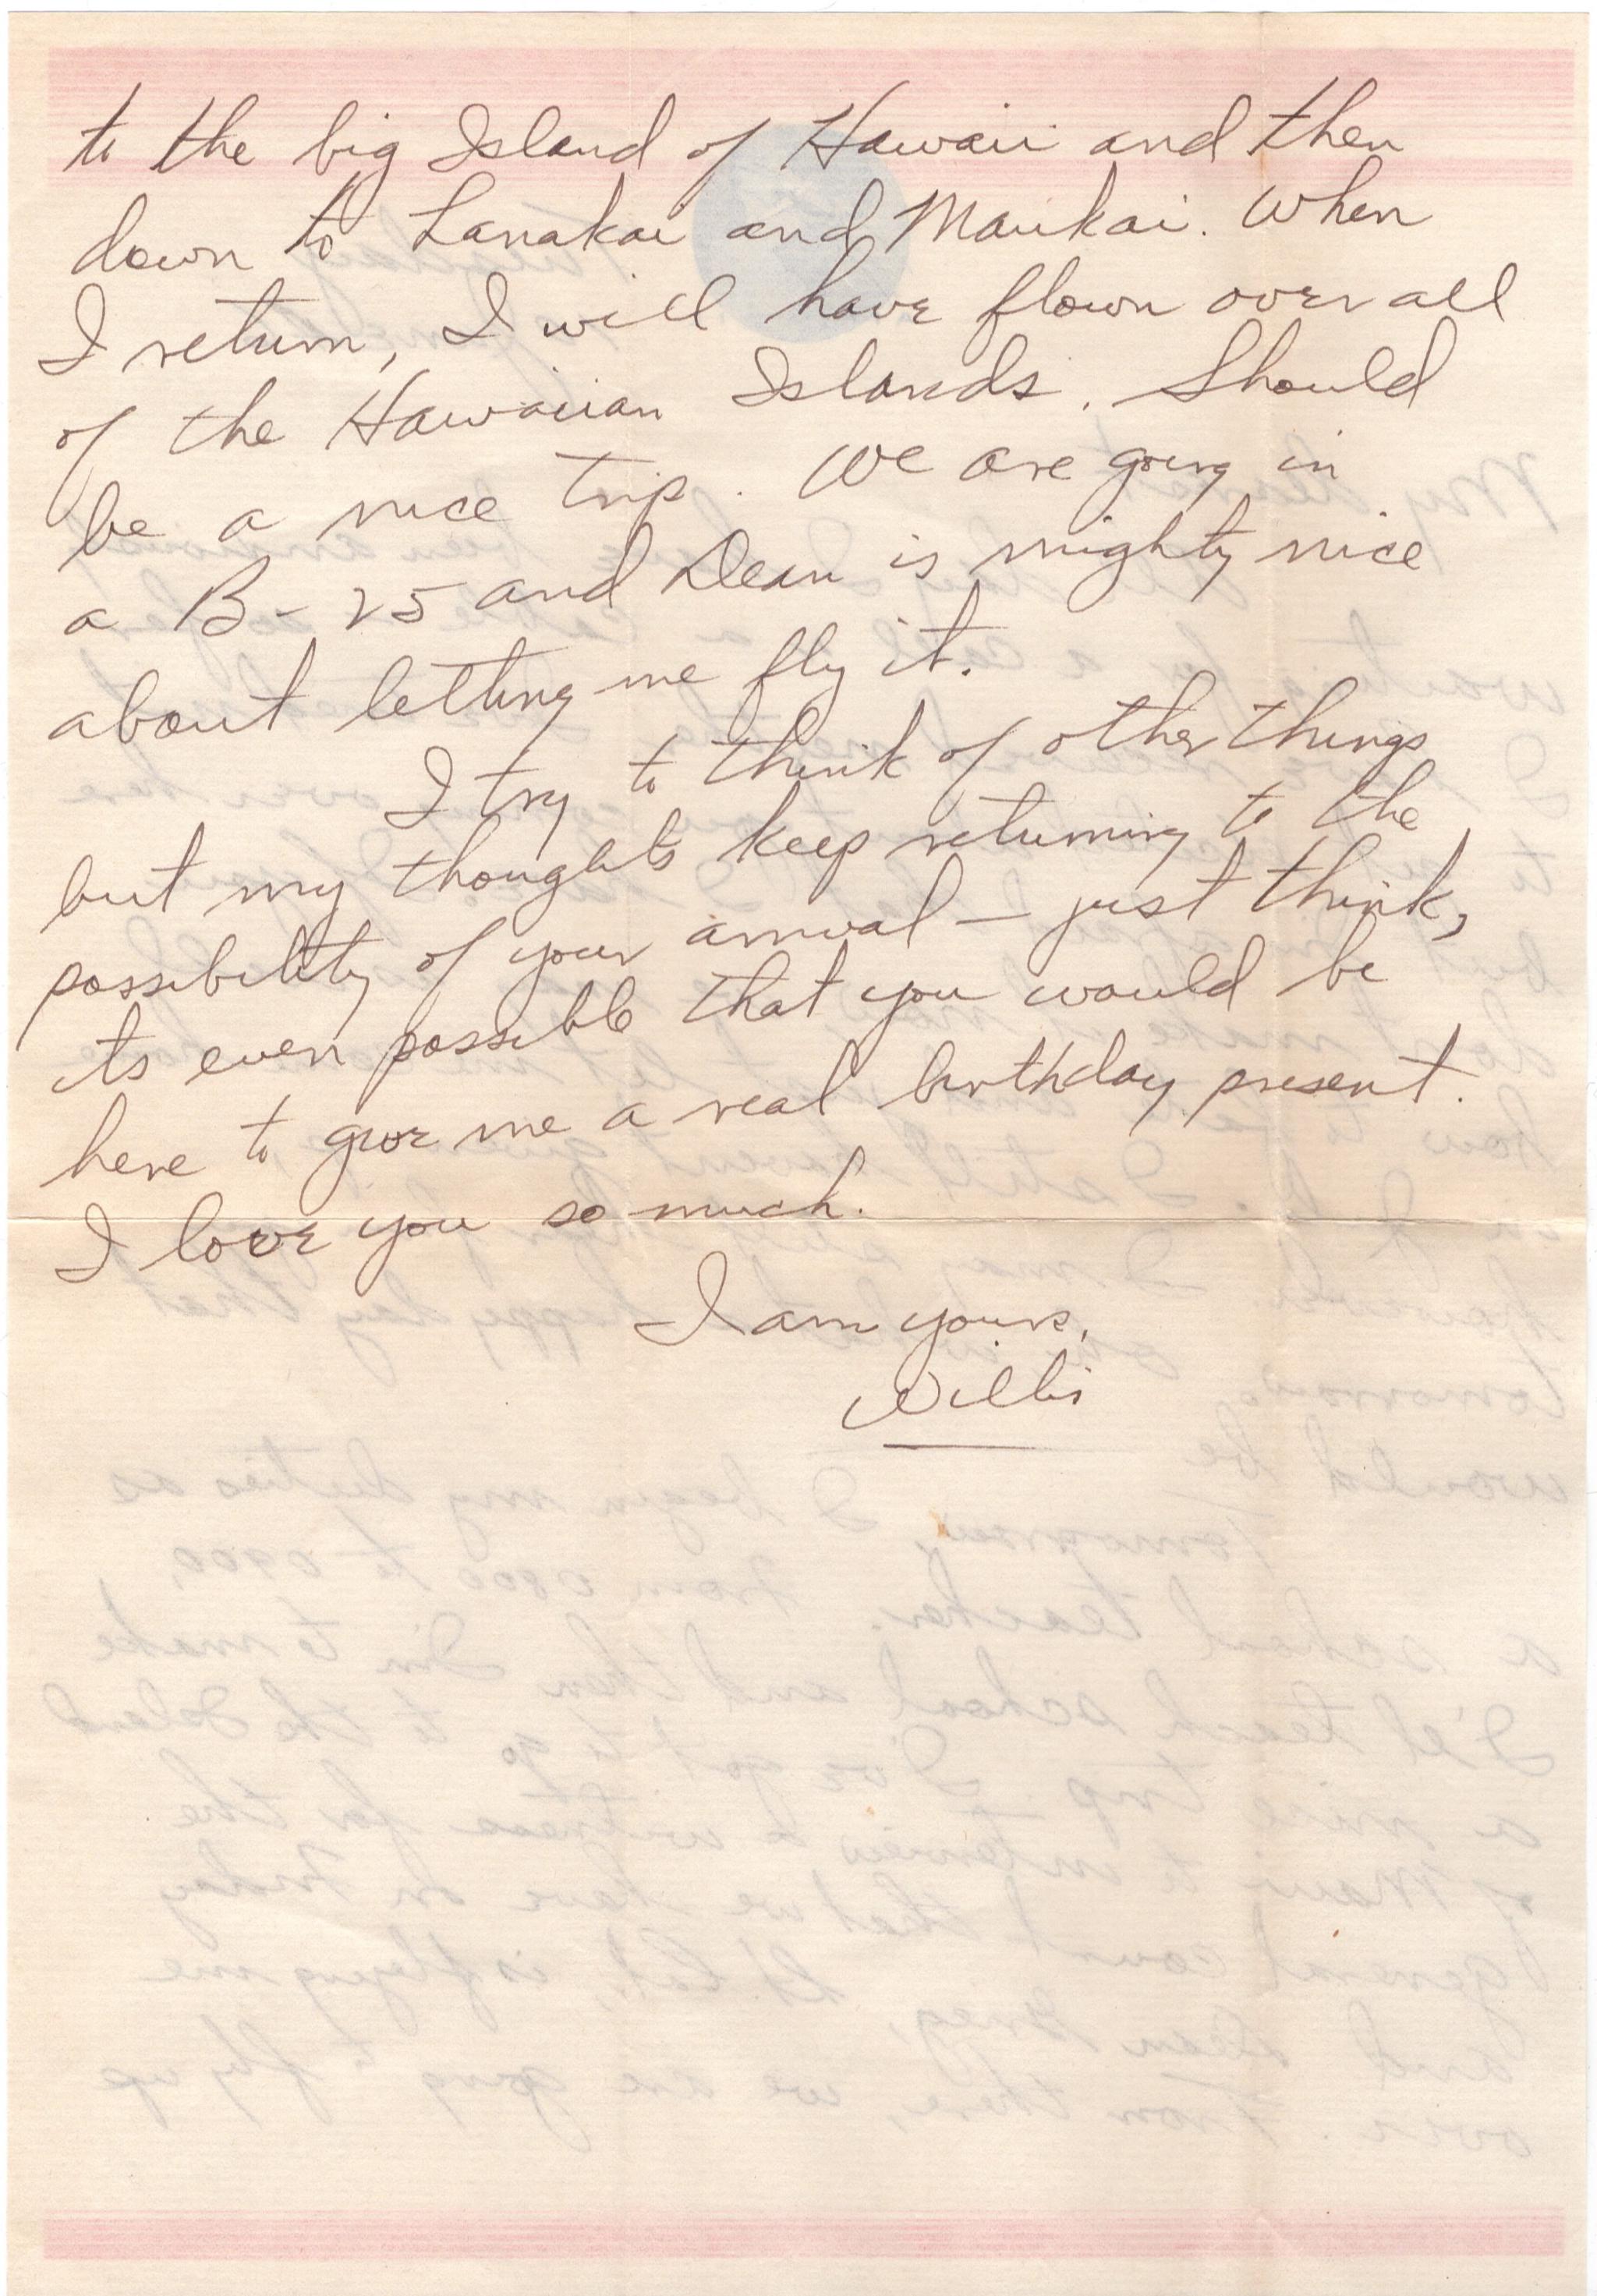 to the big Island of Hawaii and then
down to Lanakai and Maukai. When
I return, I will have flown over all
of the Hawaiian Islands. Should
be a nice trip. We are going in
a B-25 and Dean is mighty nice
about letting me fly it.
I try to think of other things
but my thoughts keep returning to the
possibility of your arrival — just think,
its even possible that you would be
here to give me a real birthday present.
I love you so much.
I am yours,
Willis